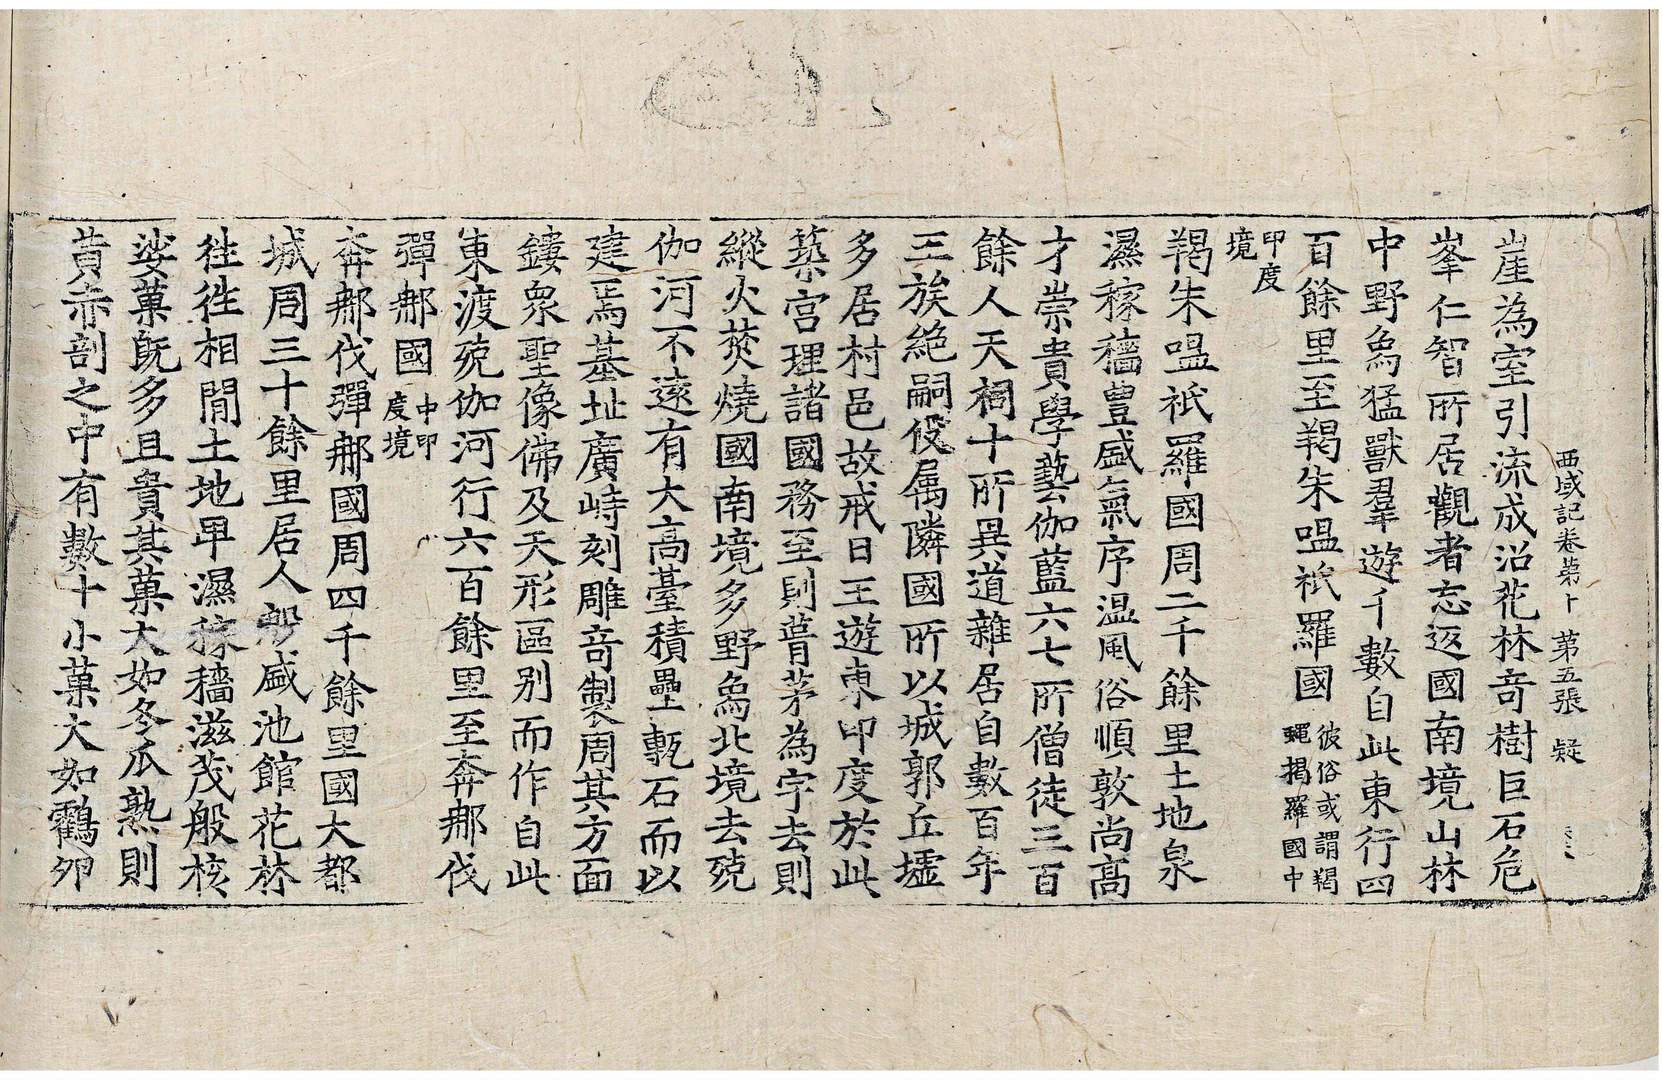 西域記卷第十　第五張　疑
崖為室引流成沼花林奇樹巨石危
峯仁智所居觀者忘返國南境山林
中野象猛獸羣遊千數自此東行四
百餘里至羯朱嗢祇羅國彼俗或謂羯
蠅揭羅國中
印度
境
羯朱嗢祇羅國周二千餘里土地泉
濕稼穡豐盛氣序温風俗順敦尚髙
才崇貴學藝伽藍六七所僧徒三百
餘人天祠十所異道雜居自數百年
王族絶嗣役属隣國所以城郭丘墟
多居村邑故戒日王遊東印度於此
築宫理諸國務至則葺茅為宇去則
縱火焚燒國南境多野象北境去殑
伽河不遠有大高臺積壘甎石而以
建焉基址廣峙刻雕奇製周其方面
鏤衆聖像佛及天形區别而作自此
東渡殑伽河行六百餘里至奔那伐
彈那國中印
度境
奔那伐彈那國周四千餘里國大都
城周三十餘里居人殷盛池館花林
往往相間土地卑濕稼穡滋茂般核
娑菓旣多且貴其菓大如冬瓜熟則
黄赤剖之中有數十小菓大如鶴夘